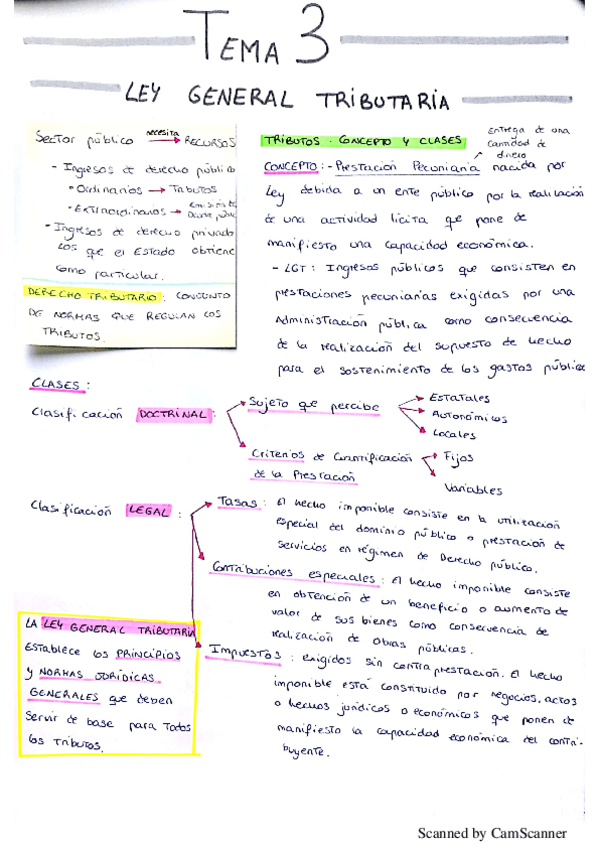 TEMA 3
LEY GENERAL TRIBUTARIA
Sector público necesita RECURSOS
- Ingresos de derecho público
• Ordinarios → Tributos
• Extraordinarios →
- Ingresos de derecho privado
los que el Estado obtiene
como particular.
DERECHO TRIBUTARIO: CONJUNTO
DE NORMAS QUE REGULAN LOS
TRIBUTOS.
TRIBUTOS. CONCEPTO Y CLASES
Entrega de una
cantidad de
dinero
CONCEPTO: - Prestación Pecuniaria nacida por
ley debida a un ente público por la realización
de una actividad lícita que pone de
manifiesto una capacidad económica.
- LGT: Ingresos públicos que consisten en
prestaciones pecuniarias exigidas por una
Administración pública como consecuencia
de la realización del supuesto de hecho
para el sostenimiento de los gastos público
CLASES:
Clasificación DOCTRINAL:
Sujeto que percibe
Estatales
Autonómicos
Locales
Criterios de Cuantificación
de la Prestación
Fijos
Variables
Clasificación LEGAL:
Tasas: El hecho imponible consiste en la utilización
especial del dominio público o prestación de
servicios en régimen de Derecho público.
Contribuciones especiales: el hecho imponible consiste
en obtención de un beneficio o aumento de
valor de sus bienes como consecuencia de
realización de obras públicas.
Impuestos: exigidos sin contraprestación. El hecho
imponible está constituido por negocios, actos
o hechos jurídicos o económicos que ponen de
manifiesto la capacidad económica del contri-
buyente.
LA LEY GENERAL TRIBUTARIA
Establece los PRINCIPIOS
y NORMAS JURÍDICAS
GENERALES que deben
servir de base para todos
los tributos.
Scanned by CamScanner